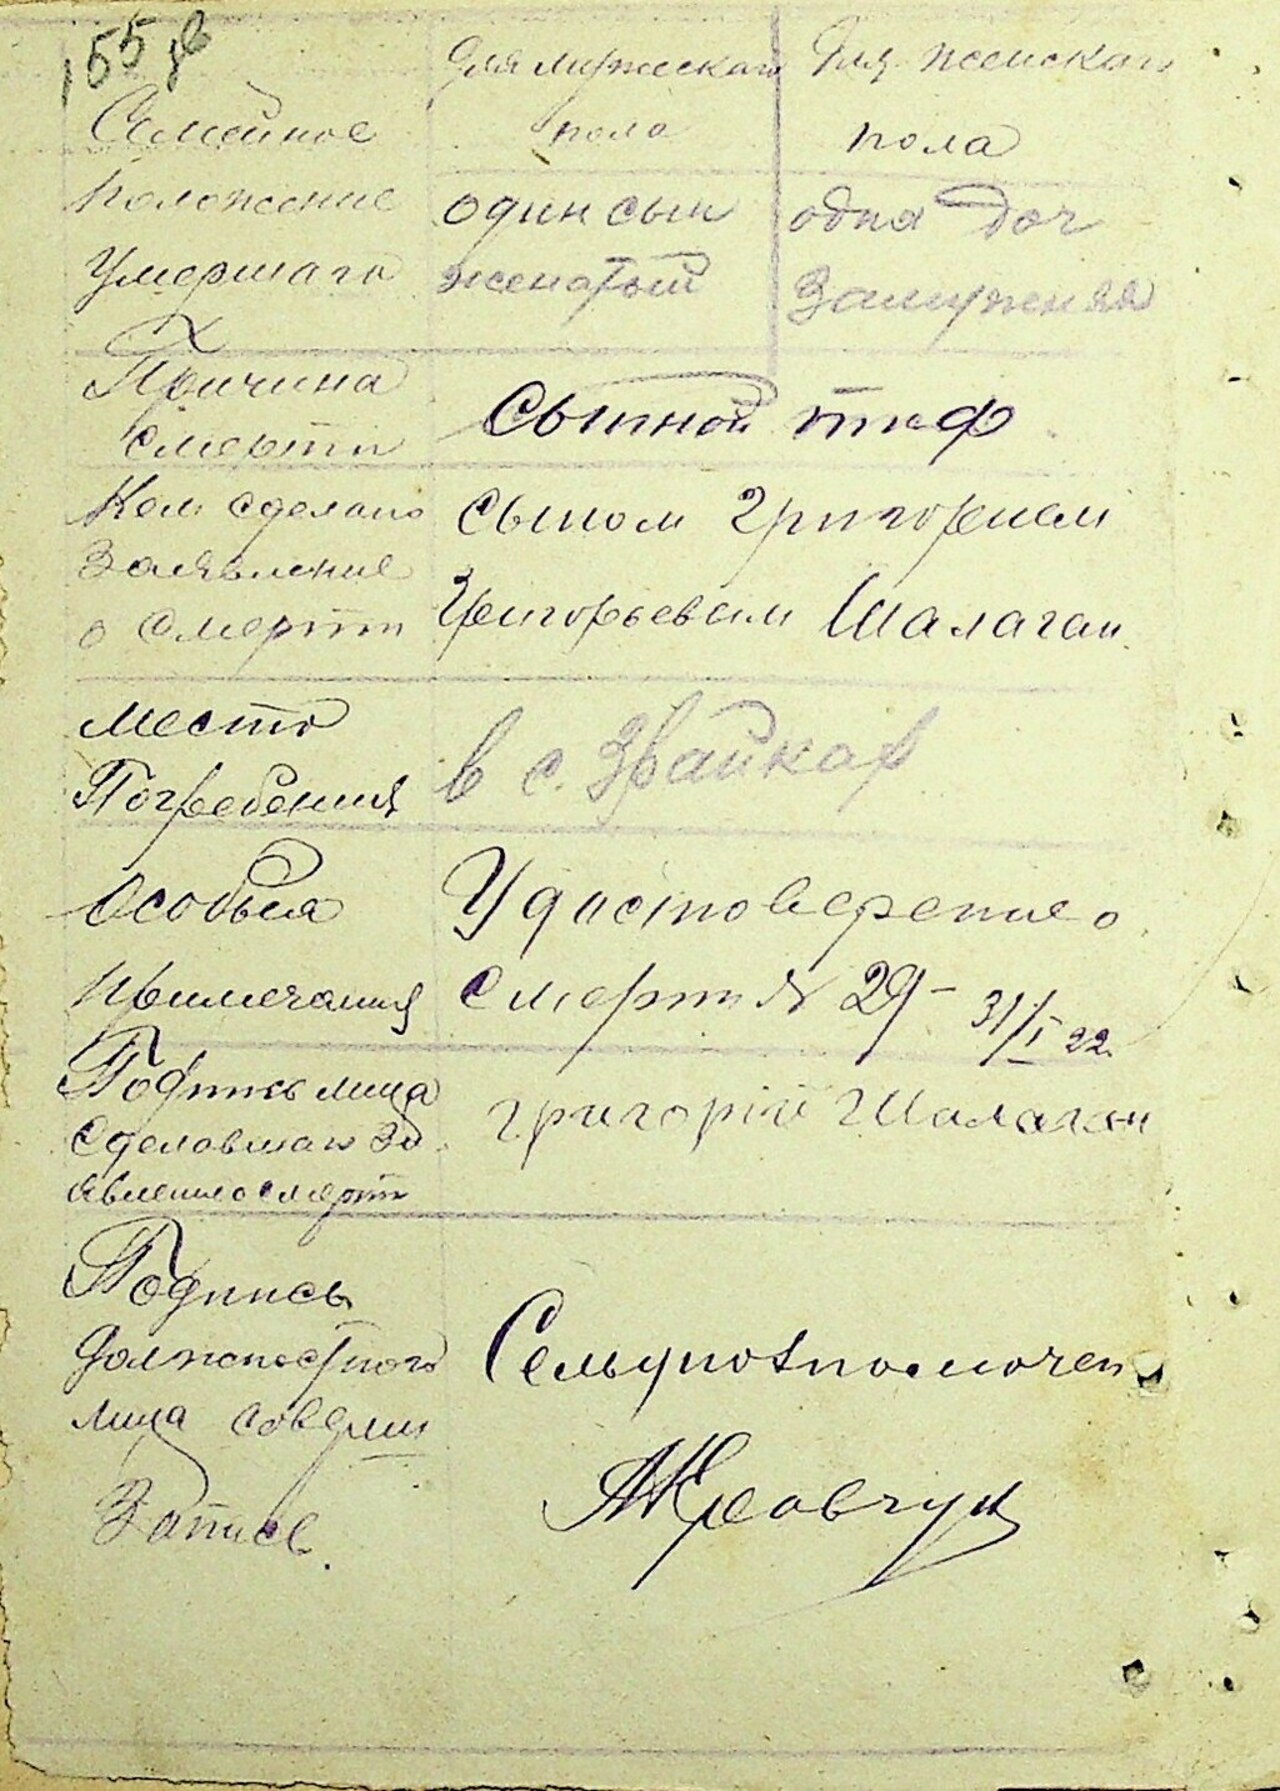 155 в
Для мужескаго Для женскаго
Семейное пола пола
положение один сын одна доч
Умершаго женатый Замужняя
Причина Сыпной тиф
смерти
Кем сделано Сыном Григорием
Заявление
о смерти Григорьевым Шалаган
Место в с. Зрайках
Погребения
Особыя Удостоверение о
примечания смерти № 29 – 31/I 22.
Подпись лица Григорій Шалаган
сделавшаго за
явление о смерти
Подпись
Должностного Сельуполномочен
лица соверш
Запись. АКравчук